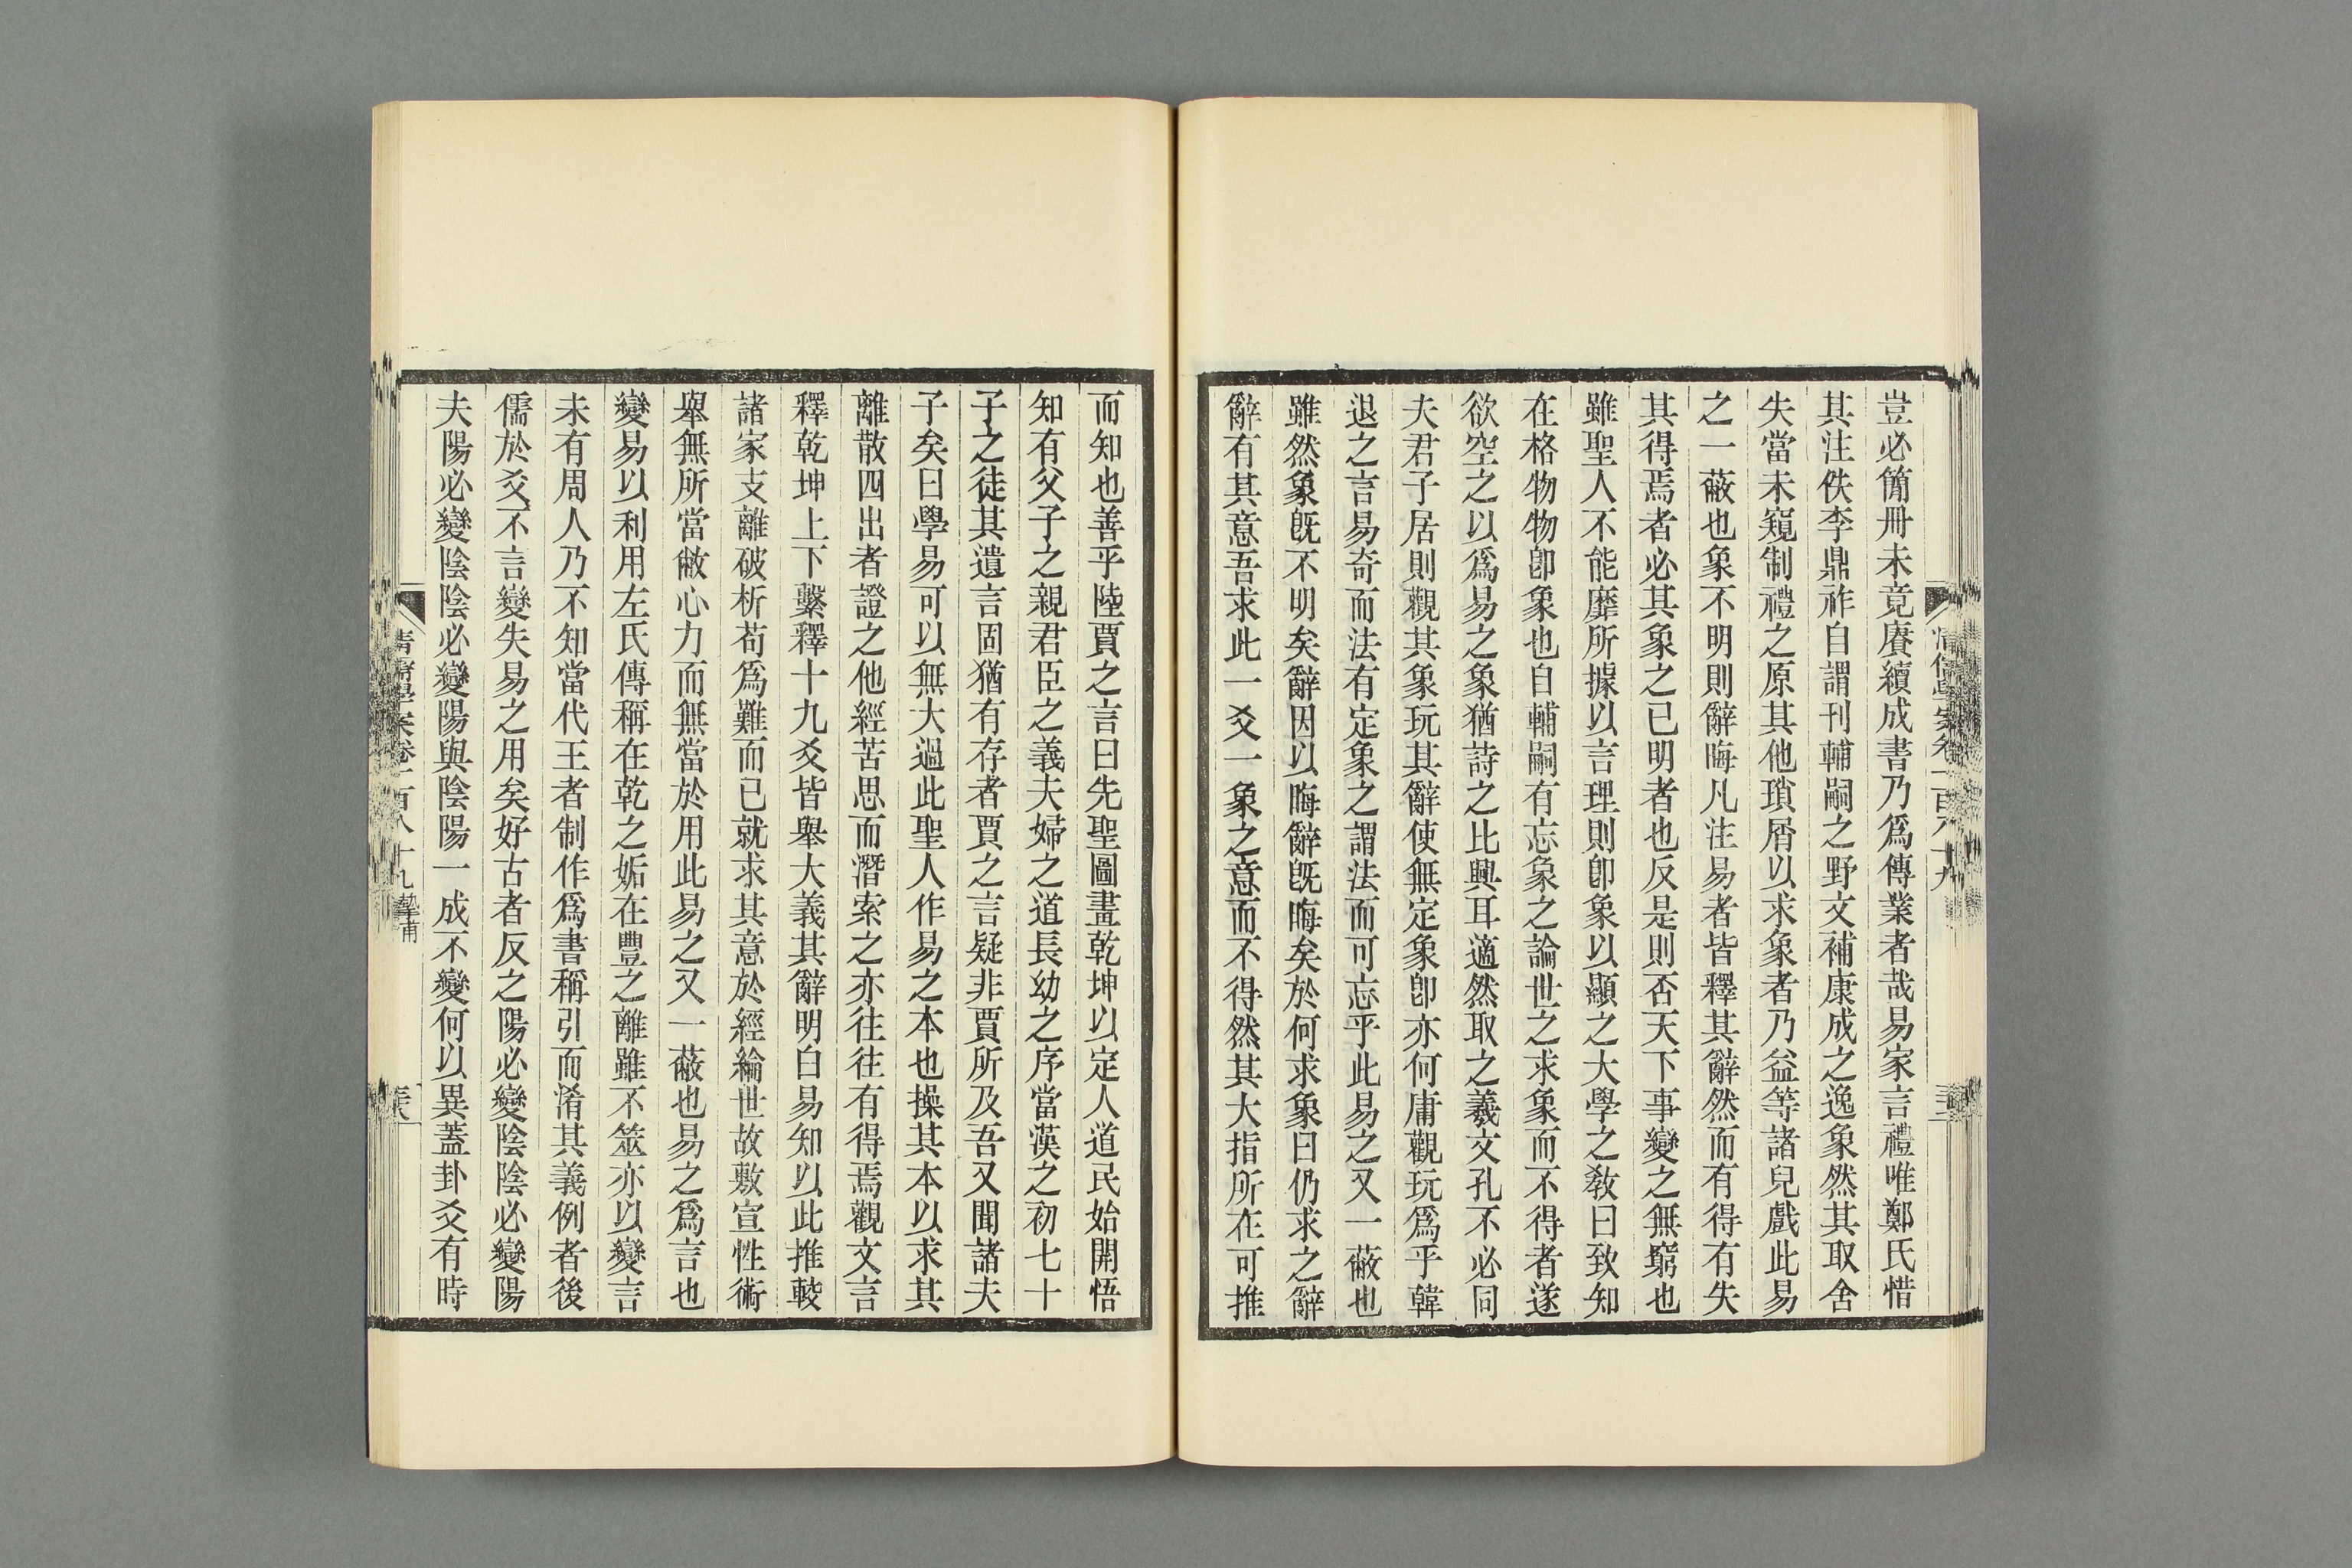 豈必簡冊未竟賡續成書乃爲傳業者哉易家言禮唯鄭氏惜
其注佚李鼎祚自謂刊輔嗣之野文補康成之逸象然其取舍
失當未窺制禮之原其他瑣屑以求象者乃益等諸兒戲此易
之一蔽也象不明則辭晦凡注易者皆釋其辭然而有得有失
其得焉者必其象之已明者也反是則否天下事變之無窮也
雖聖人不能靡所據以言理則卽象以顯之大學之敎曰致知
在格物物卽象也自輔嗣有忘象之論世之求象而不得者遂
欲空之以爲易之象猶詩之比興耳適然取之羲文孔不必同
夫君子居則觀其象玩其辭使無定象卽亦何庸觀玩爲乎韓
退之言易奇而法有定象之謂法而可忘乎此易之又一蔽也
雖然象旣不明矣辭因以晦辭旣晦矣於何求象曰仍求之辭
辭有其意吾求此一爻一象之意而不得然其大指所在可推
而知也善乎陸賈之言曰先聖圖畫乾坤以定人道民始開悟
知有父子之親君臣之義夫婦之道長幼之序當漢之初七十
子之徒其遺言固猶有存者賈之言疑非賈所及吾又聞諸夫
子矣曰學易可以無大過此聖人作易之本也操其本以求其
離散四出者證之他經苦思而潛索之亦往往有得焉觀文言
釋乾坤上下繫釋十九爻皆舉大義其辭明白易知以此推較
諸家支離破析苟爲難而已就求其意於經綸世故敷宣性術
舉無所當敝心力而無當於用此易之又一蔽也易之爲言也
變易以利用左氏傳稱在乾之姤在豐之離雖不筮亦以變言
未有周人乃不知當代王者制作爲書稱引而淆其義例者後
儒於爻不言變失易之用矣好古者反之陽必變陰陰必變陽
夫陽必變陰陰必變陽與陰陽一成不變何以異蓋卦爻有時
清儒學案卷一百八十九 摯甫